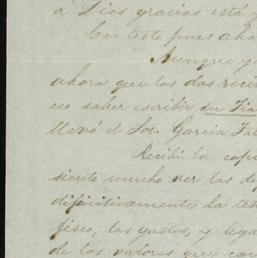 a Dios gracias está y
En este pues aho
Aunque y
ahora que los dos reci
no saber escribir su Tia
llevó el Sor. Garcia
Recibi la
siento mucho ver las de
difinitivamente la tes
fisco, los gastos, y lega
de los valores que con